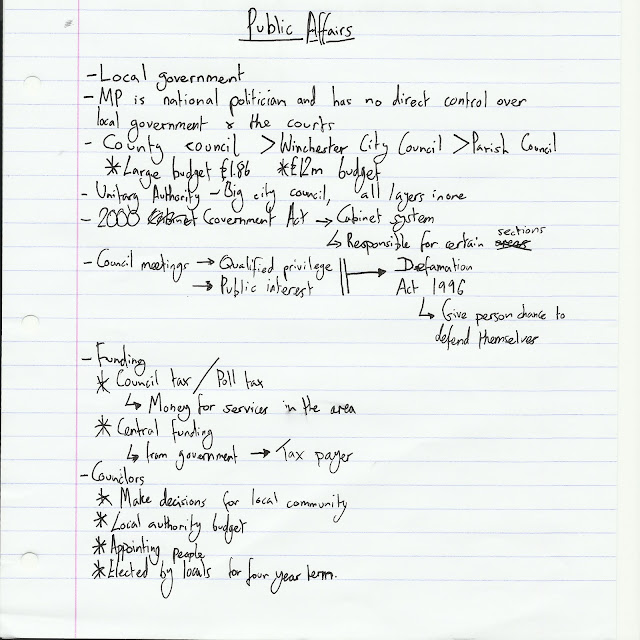 Public Affairs
- Local government
- MP is national politician and has no direct control over
local government & the courts
- County council > Winchester City Council > Parish Council
* Large budget £1.8b * £12m budget
- Unitary Authority - Big city council, all layers in one
- 2000 Government Act → Cabinet system
↳ Responsible for certain sections
- Council meetings → Qualified privilege || → Defamation
→ Public interest Act 1996
↳ Give person chance to
defend themselves
- Funding
* Council tax / Poll tax
↳ Money for services in the area
* Central funding
↳ from government → Tax payer
- Councilors
* Make decisions for local community
* Local authority budget
* Appointing people
* Elected by locals for four year term.